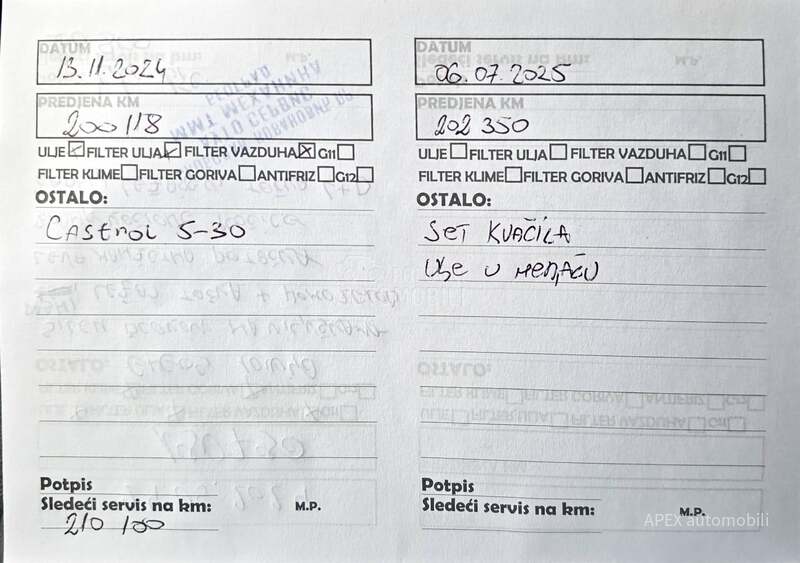 DATUM
13.11.2024
PREDJENA KM
200118
ULJE FILTER ULJA FILTER VAZDUHA G11
FILTER KLIME FILTER GORIVA ANTIFRIZ G12
OSTALO:
Castrol 5-30
Potpis
Sledeći servis na km:
M.P.
210 100
DATUM
06.07.2025
PREDJENA KM
202 350
ULJE FILTER ULJA FILTER VAZDUHA G11
FILTER KLIME FILTER GORIVA ANTIFRIZ G12
OSTALO:
SET KVAČILA
Ulje u menjaču
Potpis
Sledeći servis na km:
M.P.
APEX automobili